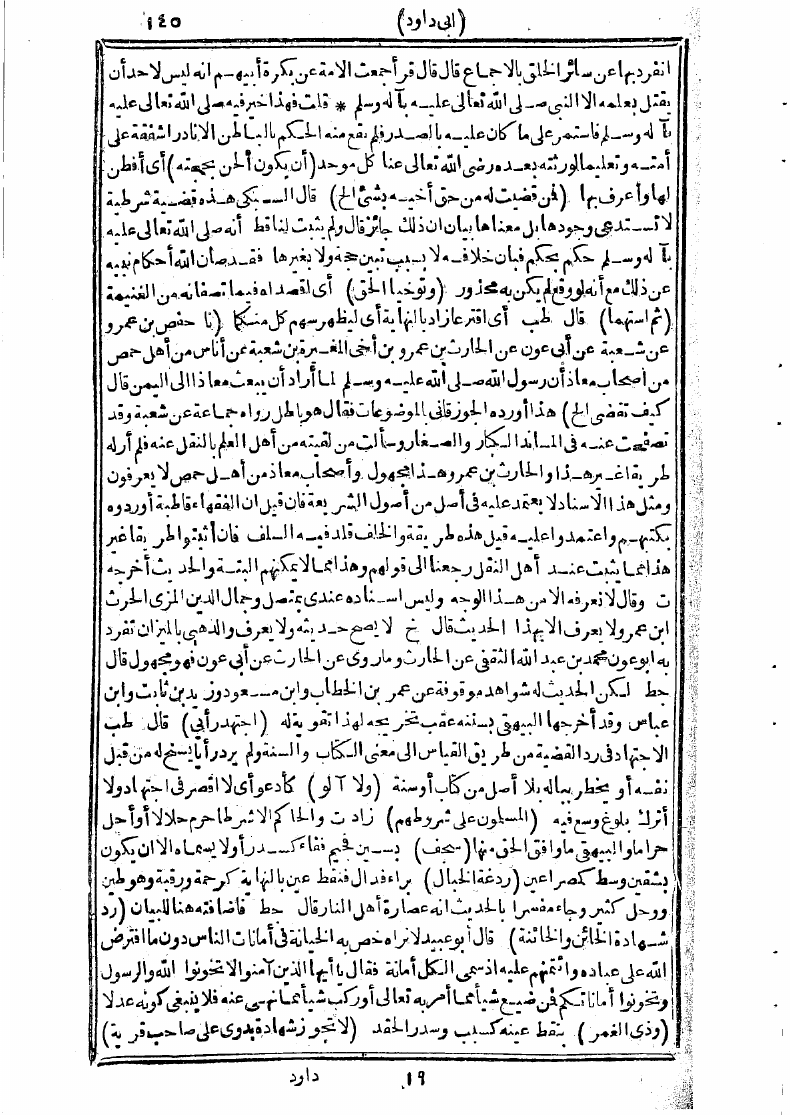 (ابى داود) ١٤٥
انفرد بها عن سائر الخلق بالاجماع قال قال قرأ جمعت الامة عن بكرة أبيهم انه ليس لاحد أن
يقتل بعلمه الا النبى صلى الله تعالى عليه بآله وسلم * قلت فهذا خير فيه صلى الله تعالى عليه
بآله وسلم فاستمر على ما كان عليه بالصدر فلم يقع منه الحكم بالباطن الا نادرا شفقة على
أمته وتعليما لورثته بعده رضى الله تعالى عنا كل موحد (أن يكون ألحن بحجته) أى أفطن
لها وأعرف بها (فمن قضيت له من حق أخيه بشئ الخ) قال السبكى هذه قضية شرطية
لا تستدعى وجودها بل معناها بيان ان ذلك جائز قال ولم يثبت لنا قط أنه صلى الله تعالى عليه
بآله وسلم حكم بحكم فبان خلافه لا بسبب تبين حجة ولا بغيرها فقد صان الله أحكام نبيه
عن ذلك مع أنه لو وقع لم يكن به محذور (وتوخيا الحق) أى اقصداه فيما تصنعانه من القسمة
(ثم استهما) قال طب أى اقترعا زاد بالنهاية أى ليظهر سهم كل منكما (نا حفص بن عمرو
عن شعبة عن أبى عون عن الحارث بن عمرو بن أخى المغيرة بن شعبة عن أناس من أهل حمص
من أصحاب معاذ أن رسول الله صلى الله عليه وسلم لما أراد أن يبعث معاذا الى اليمن قال
كيف تقضى الخ) هذا أورده الجوزقانى بالموضوعات فقال هو باطل رواه جماعة عن شعبة وقد
تصفحت عنه فى المسانيد الكبار والصغار وسألت من لقيته من أهل العلم بالنقل عنه فلم أر له
طريقا غير هذا والحارث بن عمرو هذا مجهول وأصحاب معاذ من أهل حمص لا يعرفون
ومثل هذا الاسناد لا يعتمد عليه فى أصل من أصول الشريعة فان قيل ان الفقهاء قاطبة أوردوه
بكتبهم واعتمدوا عليه قيل هذه طريقة والخلف قلد فيه السلف فان أثبتوا طريقا غير
هذا مما يثبت عند أهل النقل رجعنا الى قولهم وهذا مما لا يمكنهم البتة والحديث أخرجه
ت وقال لا نعرفه الا من هذا الوجه وليس اسناده عندى بمتصل وجمال الدين المزى الحرث
ابن عمر ولا يعرف الا بهذا الحديث قال خ لا يصح حديثه ولا يعرف والذهبى بالميزان تفرد
به ابو عون محمد بن عبد الله الثقفى عن الحارث وما روى عن الحارث عن أبى عون فهو مجهول قال
حط لكن الحديث له شواهد موقوفة عن عمر بن الخطاب وابن مسعود وزيد بن ثابت وابن
عباس وقد أخرجها البيهقى بسننه عقب تخريجه لهذا تقوية له (اجتهد رأيى) قال طب
الاجتهاد فى رد القضية من طريق القياس الى معنى الكتاب والسنة ولم يرد رأيا يسنح له من قبل
نفسه أو يخطر بباله بلا أصل من كتاب أو سنة (ولا آلو) كأدعو أى لا اقصر فى اجتهاد ولا
أترك بلوغ وسع فيه (المسلمون على شروطهم) زاد ت والحاكم الا شرطا حرم حلالا أو أحل
حراما والبيهقى ما وافق الحق منها (سجف) بسين فجيم ففاء كسدر أولا يسماه الا ان يكون
بشقين وسط كمصراعين (ردغة الخبال) براء فدال فنقط عين بالنهاية كرحمة ورقبة وهو طين
ووحل كثير وجاء مفسرا بالحديث انه عصارة أهل النار قال حط فاضافته هنا للبيان (رد
شهادة الخائن والخائنة) قال أبو عبيد لا نراه خص به الخيانة فى أمانات الناس دون ما افترض
الله على عباده وائتمنهم عليه اذ سمى الكل أمانة فقال يا أيها الذين آمنوا لا تخونوا الله والرسول
وتخونوا أماناتكم فمن ضيع شيأ مما أمر به تعالى أو ركب شيأ مما نهى عنه فلا ينبغى كونه عدلا
(وذى الغمر) بنقط عينه كسبب وسدر الحقد (لا تجوز شهادة بدوى على صاحب قرية)
١٩ داود